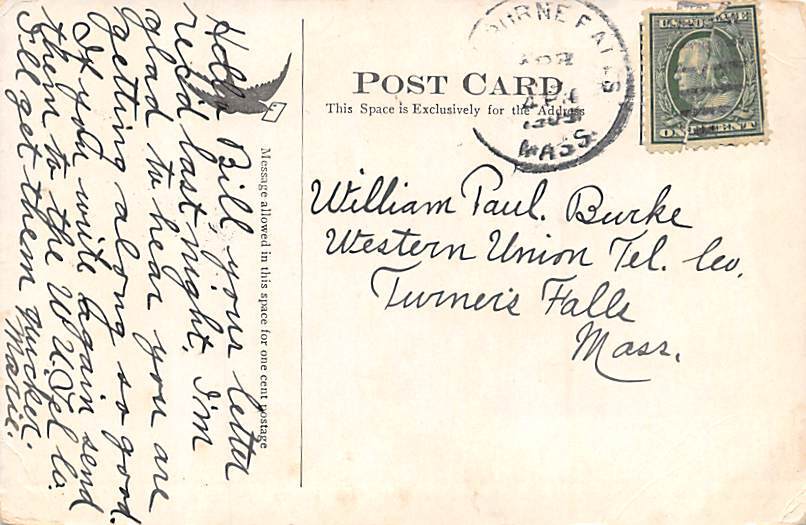 Hello Bill, your letter
rec'd last night. I'm
glad to hear you are
getting along so good.
If you write again send
them to the W.U. Tel Co.
I'll get them quicker.
Marie.
Message allowed in this space for one cent postage
POST CARD
This Space is Exclusively for the Address
BURNE FALLS
APR
1909
MASS.
U.S. POSTAGE
ONE CENT
William Paul. Burke
Western Union Tel. Co.
Turner's Falls
Mass.